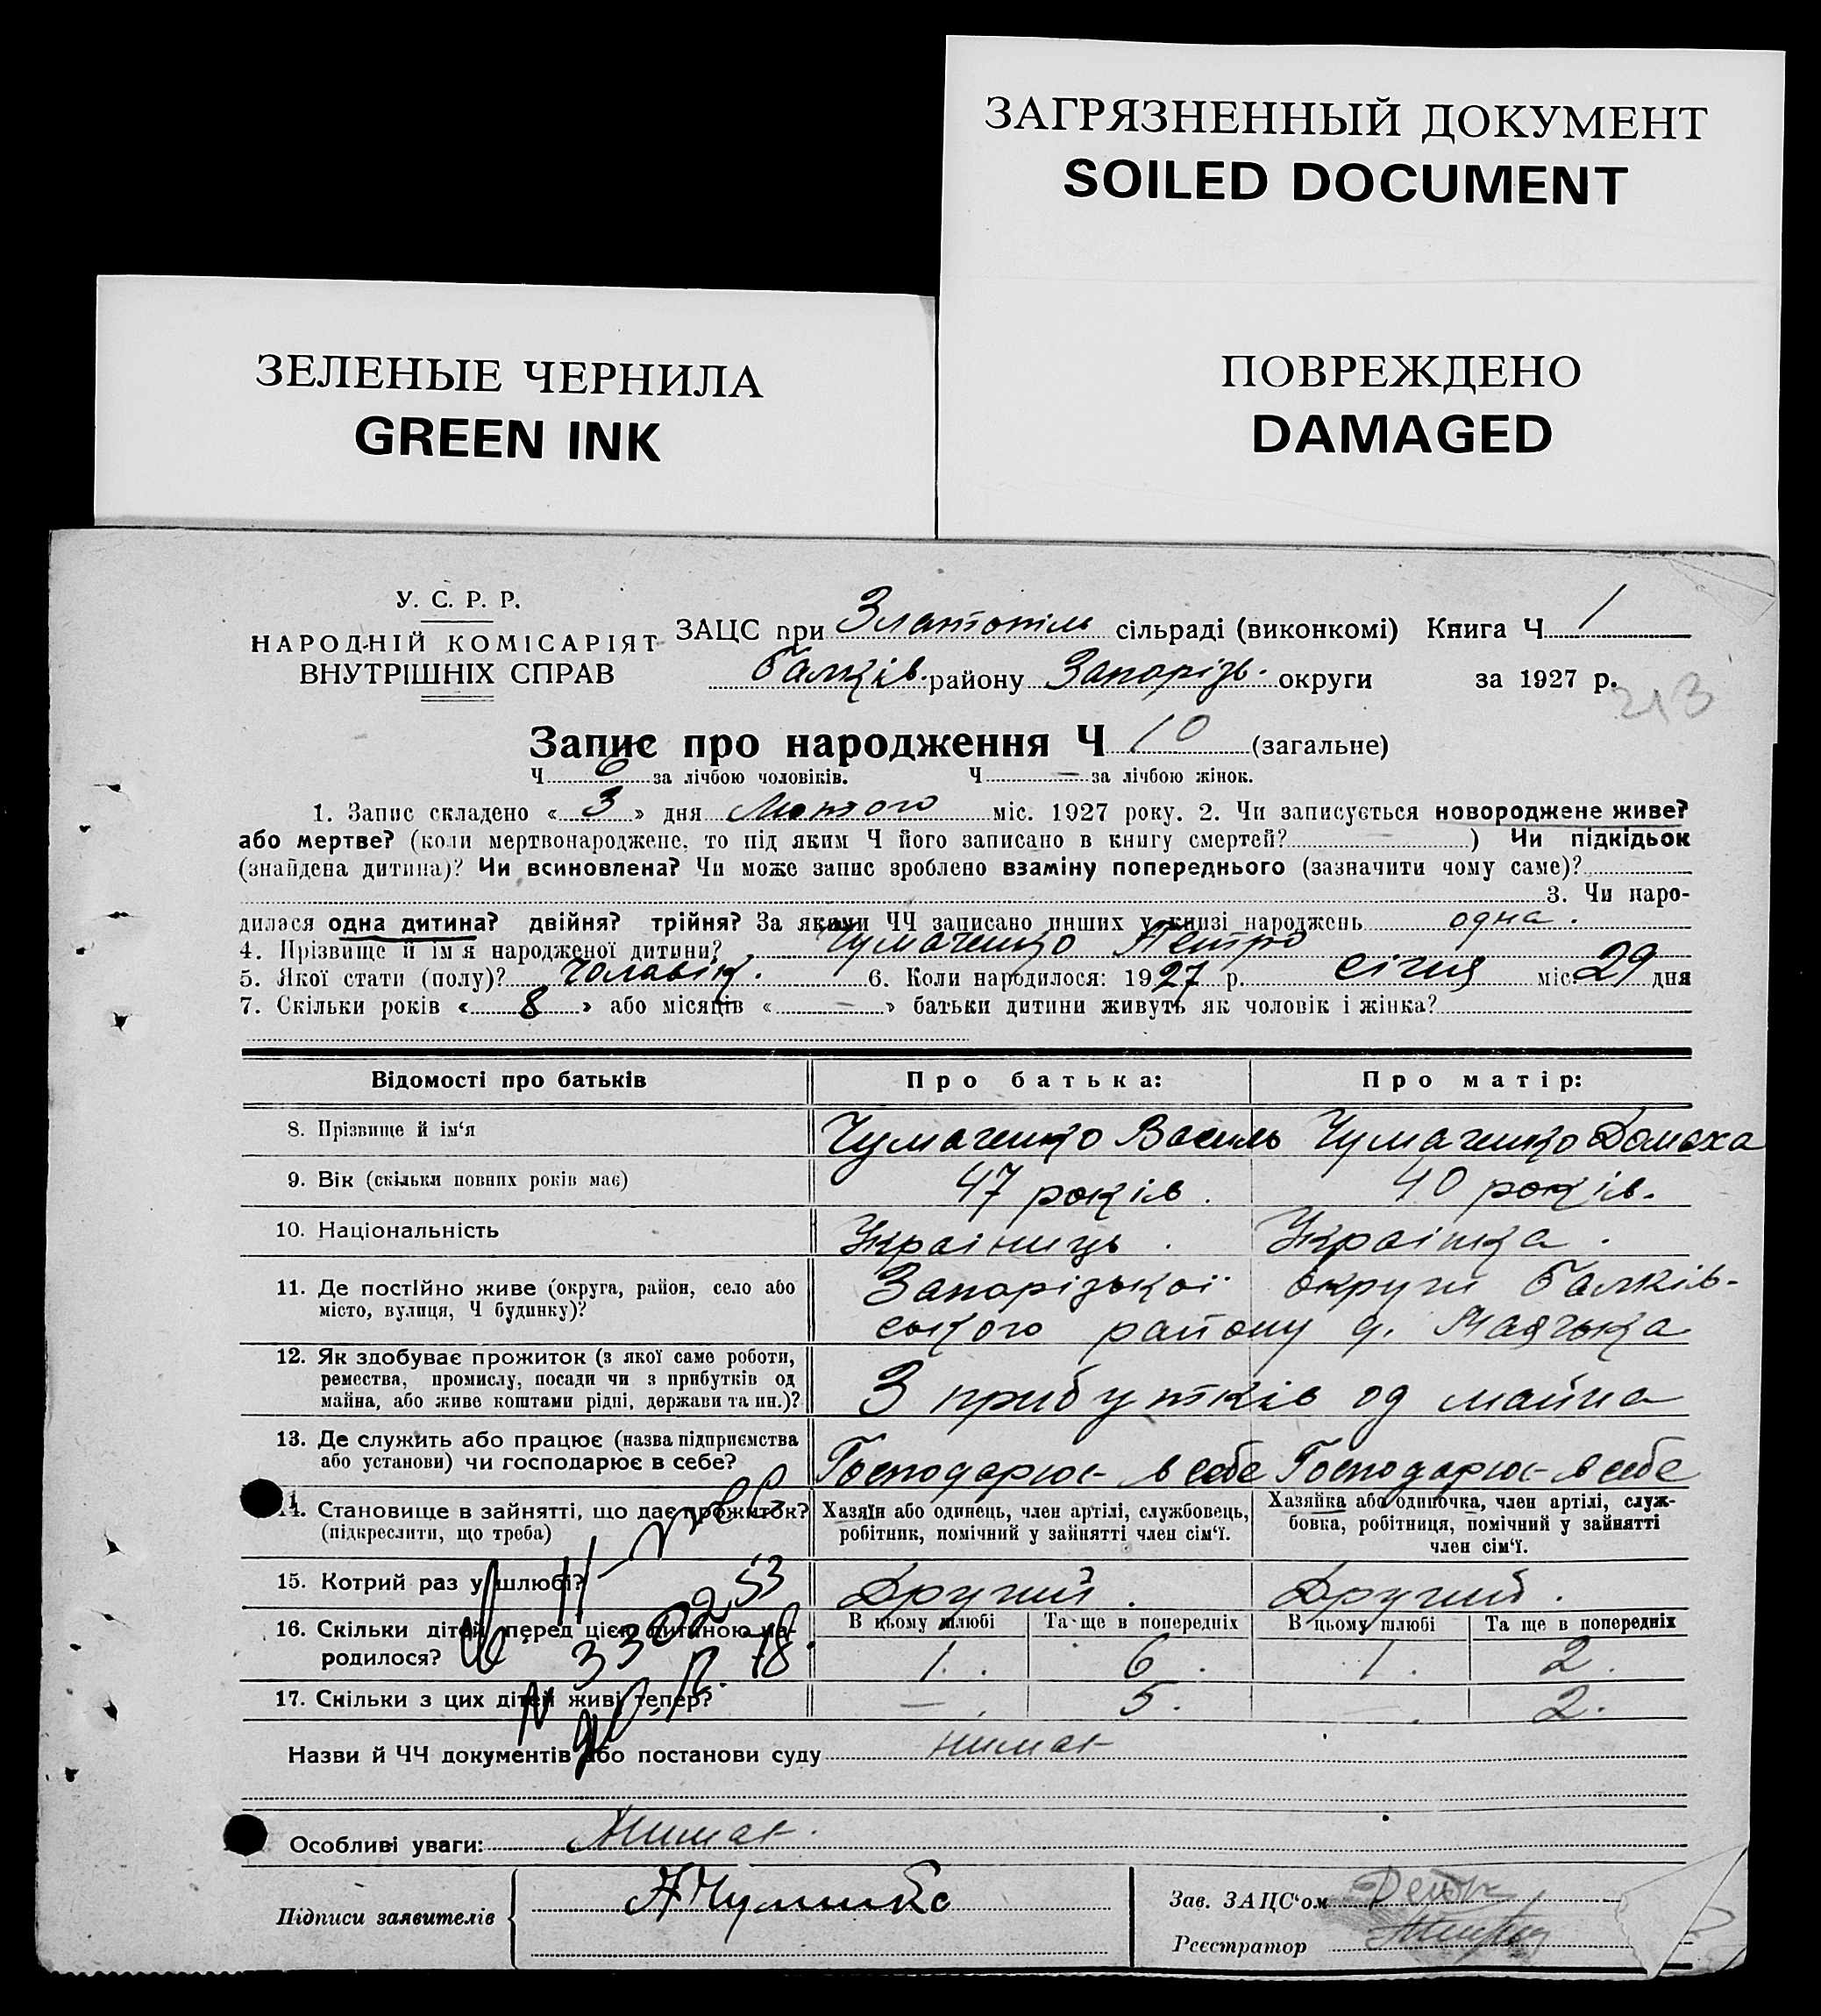 ЗАГРЯЗНЕННЫЙ ДОКУМЕНТ
SOILED DOCUMENT
ПОВРЕЖДЕНО
DAMAGED
ЗЕЛЕНЫЕ ЧЕРНИЛА
GREEN INK
У. С. Р. Р.
НАРОДНІЙ КОМІСАРІЯТ
ВНУТРІШНІХ СПРАВ
ЗАЦС при Златопіль сільраді (виконкомі) Книга Ч 1
Балків. району Запорізь. округи за 1927 р.
213
Запис про народження Ч 10 (загальне)
Ч 6 за лічбою чоловіків. Ч — за лічбою жінок.
1. Запис складено « 3 » дня Лютого міс. 1927 року. 2. Чи записується новороджене живе?
або мертве? (коли мертвонароджене, то під яким Ч його записано в книгу смертей? ) Чи підкідьок
(знайдена дитина)? Чи всиновлена? Чи може запис зроблено взаміну попереднього (зазначити чому саме)?
3. Чи наро-
дилася одна дитина? двійня? трійня? За якими ЧЧ записано инших у книзі народжень одна.
4. Прізвище й ім'я народженої дитини? Чумаченко Петро
5. Якої стати (полу)? Чоловік. 6. Коли народилося: 1927 р. січня міс. 29 дня
7. Скільки років « 8 » або місяців « — » батьки дитини живуть як чоловік і жінка?
Відомості про батьків Про батька: Про матір:
8. Прізвище й ім'я Чумаченко Василь Чумаченко Домаха
9. Вік (скільки повних років має) 47 років. 40 років.
10. Національність Украінець. Украінка.
11. Де постійно живе (округа, район, село або Запорізькоі округи Балків-
місто, вулиця, Ч будинку)? ського району д. Маячка
12. Як здобуває прожиток (з якої саме роботи,
ремества, промислу, посади чи з прибутків од З прибутків од майна
майна, або живе коштами рідні, держави та ин.)?
13. Де служить або працює (назва підприємства
або установи) чи господарює в себе? Господарює в себе Господарює в себе
14. Становище в зайнятті, що дає прожиток? Хазяїн або одинець, член артілі, службовець, Хазяйка або одиночка, член артілі, служ-
(підкреслити, що треба) робітник, помічний у зайнятті член сім'ї. бовка, робітниця, помічний у зайнятті
член сім'ї.
15. Котрий раз у шлюбі? Другий. Другий.
16. Скільки дітей перед цією дитиною на- В цьому шлюбі Та ще в попередніх В цьому шлюбі Та ще в попередніх
родилося? 1. 6. 1. 2.
17. Скільки з цих дітей живі тепер? — 5. — 2.
Назви й ЧЧ документів або постанови суду нимає
Особливі уваги: Нимає.
Підписи заявителів
Зав. ЗАЦС'ом
Реєстратор